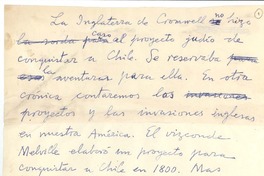 La Inglaterra de Cromwell no hizo
la sorda para caso al proyecto judío de
conquistar a Chile. Se reservaba para
eso la aventura para ella. En otra
crónica contaremos los invasores
proyectos y las invasiones inglesas
en nuestra América. El vizconde
Melville elaboró un proyecto para
conquistar a Chile en 1800. Mas